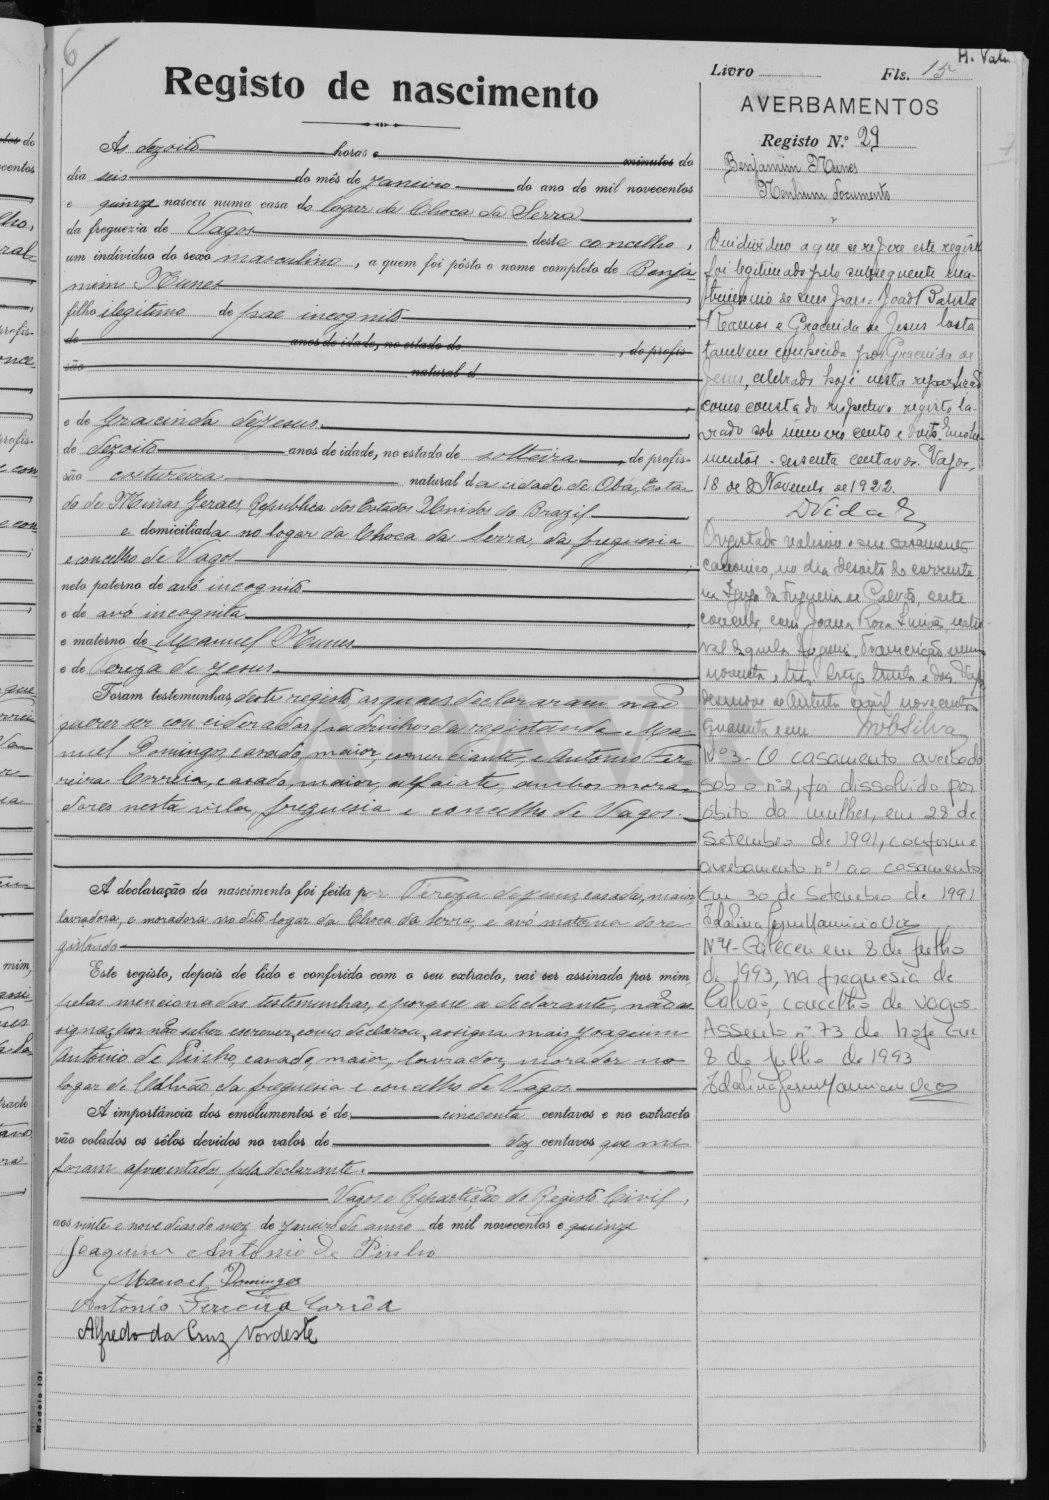 6
Registo de nascimento
Ás dezoito horas e minutos do
dia seis do mês de Janeiro do ano de mil novecentos
e quinze nasceu numa casa do logar da Choca da Serra
da freguezia de Vagos deste concelho,
um individuo do sexo masculino, a quem foi pôsto o nome completo de Benja-
mim Nunes
filho ilegitimo de pae incognito
de anos de idade, no estado de , de profis-
são natural d
e de Gracinda de Jesus
de dezoito anos de idade, no estado de solteira, de profis-
são costureira natural da cidade de Obá, Esta-
do de Minas Geraes, Republica dos Estados Unidos do Brazil
e domiciliada no logar da Choca da Serra, da freguesia
e concelho de Vagos
neto paterno de avó incognito
e de avó incognita
e materno de Manuel Nunes
e de Tereza de Jesus
Foram testemunhas deste registo, as quaes declararam não
querer ser considerados padrinhos do registando Ma-
nuel Domingos, casado, maior, comerciante, e Antonio Fer-
reira Corrêia, casado, maior, alfaiate, ambos mora-
dores nesta vila, freguesia e concelho de Vagos.
A declaração do nascimento foi feita por Tereza de Jesus, casada, maior,
lavradora, e moradora no dito logar da Choca da Serra, e avó materna do re-
gistando
Este registo, depois de lido e conferido com o seu extracto, vai ser assinado por mim,
pelas mencionadas testemunhas, e porque a declarante, não as-
signa, por não saber escrever, como declarou, assigna mais Joaquim
Antonio de Pinho, casado, maior, lavrador, morador no
logar de Calvão, da freguesia e concelho de Vagos
A importância dos emolumentos é de cincoenta centavos e no extracto
vão colados os sêlos devidos no valor de dez centavos que me
foram apresentados pela declarante.
Vagos e Repartição do Registo Civil,
aos vinte e nove dias do mez de Janeiro do anno de mil novecentos e quinze
Joaquim Antonio de Pinho
Manoel Domingos
Antonio Ferreira Corrêa
Alfredo da Cruz Nordeste
Modelo 101
Livro Fls. 15
AVERBAMENTOS
Registo N.º 29
Benjamim Nunes
Nenhum documento
O individuo a que se refere este registo
foi legitimado pelo subsequente ma-
trimonio de seus pais - João Batista
Ramos e Gracinda de Jesus Costa
tambem conhecida por Gracinda de
Jesus, celebrado hoje nesta repartição
como consta do respectivo registo la-
vrado sob numero cento e doito. Emolu-
mentos - sessenta centavos. Vagos,
18 de Novembro de 1922.
O registado realisou o seu casamento
canonico, no dia desoito do corrente
na Igreja da Freguesia de Calvão, deste
concelho, com Joana Rosa
Nº 3 - O casamento averbado
sob o nº 2, foi dissolvido por
óbito da mulher, em 28 de
Setembro de 1991, conforme
averbamento nº 1 ao casamento
Em 30 de Setembro de 1991
Nº 4 - Faleceu em 8 de Julho
de 1993, na freguesia de
Calvão, concelho de Vagos.
Assento nº 73 de hoje Em
8 de Julho de 1993